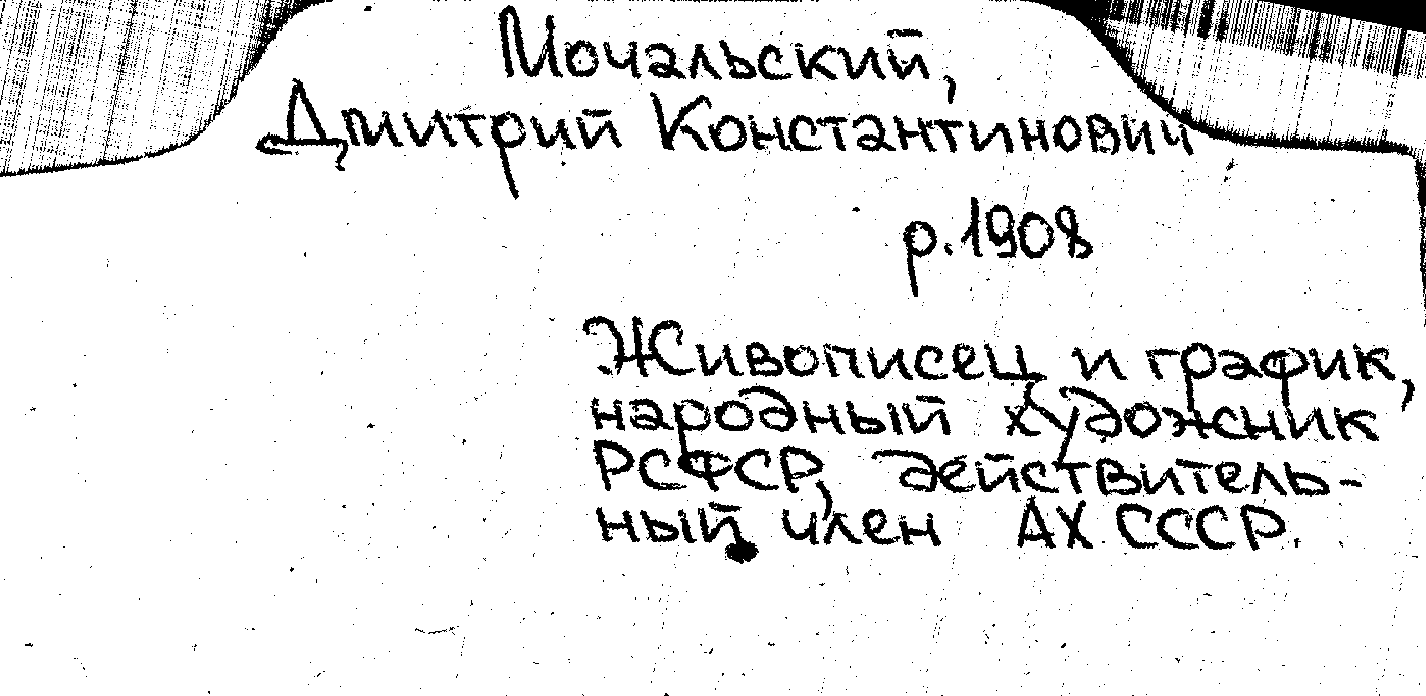 Мочальский,
Дмитрий Константинович
р. 1908
Живописец и график,
народный художник
РСФСР, действитель-
ный член АХ СССР.